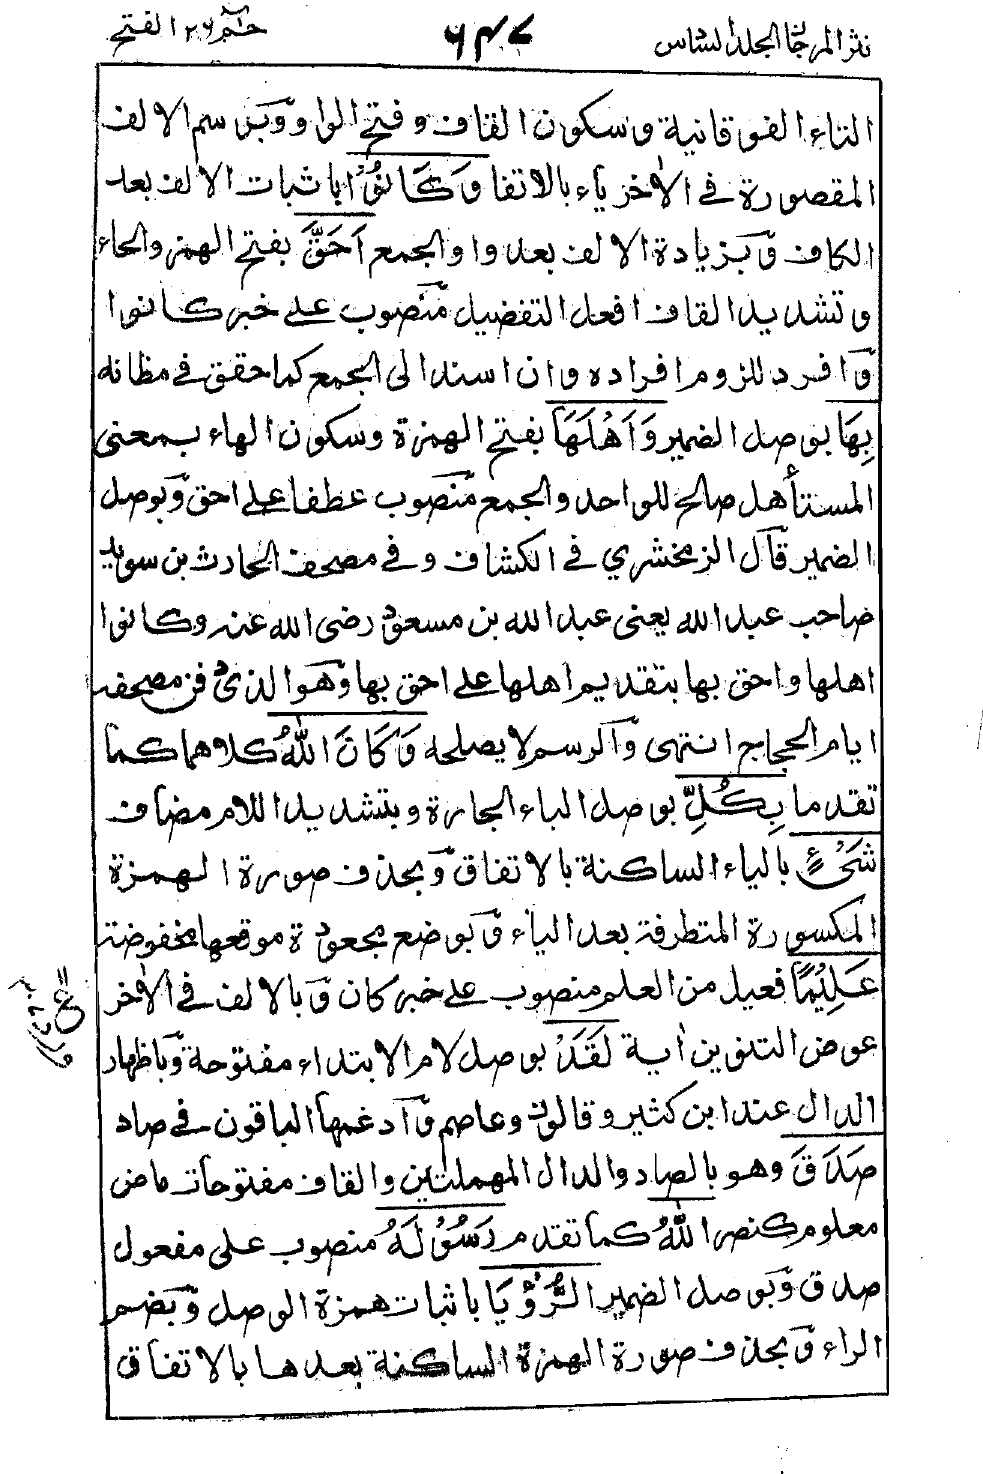 نثر المرجان المجلد السادس ٦٤٧ حٰم ٢٦ الفتح
التاء الفوقانية وسكون القاف وفتح الواو وبرسم الالف
المقصورة في الاٰخر ياء بالاتفاق وَكَانُوْا باثبات الالف بعد
الكاف وبزيادة الالف بعد واو الجمع اَحَقَّ بفتح الهمز والحاء
وتشديد القاف افعل التفضيل منصوب على خبر كانوا
وافرد للزوم افراده وان اسند الى الجمع كما حقق في مظانه
بِهَا بوصل الضمير وَاَهْلَهَا بفتح الهمزة وسكون الهاء بمعنى
المستأهل صالح للواحد والجمع منصوب عطفا على احق وبوصل
الضمير قال الزمخشري في الكشاف وفي مصحف الحارث بن سويد
صاحب عبد الله يعني عبد الله بن مسعود رضى الله عنه وكانوا
اهلها واحق بها بتقديم اهلها على احق بها وهو الذي دفن مصحفه
ايام الحجاج انتهى والرسم لا يصلحه وَكَانَ اللّٰهُ كلاهما كما
تقدما بِكُلِّ بوصل الباء الجارة وبتشديد اللام مضاف
شَيْءٍ بالياء الساكنة بالاتفاق وبحذف صورة الهمزة
المكسورة المتطرفة بعد الياء وبوضع مجعودة موقعها مخفوضة
عَلِيْمًا فعيل من العلم منصوب على خبر كان وبالالف في الاٰخر
عوض التنوين اٰية لَقَدْ بوصل لام الابتداء مفتوحة وباظهار
الدال عند ابن كثير وقالون وعاصم وادغمها الباقون في صاد
صَدَقَ وهو بالصاد والدال المهملتين والقاف مفتوحات ماض
معلوم كنصر اللّٰهُ كما تقدم رَسُوْلَهُ منصوب على مفعول
صدق وبوصل الضمير الرُّؤْيَا باثبات همزة الوصل وبضم
الراء وبحذف صورة الهمزة الساكنة بعدها بالاتفاق